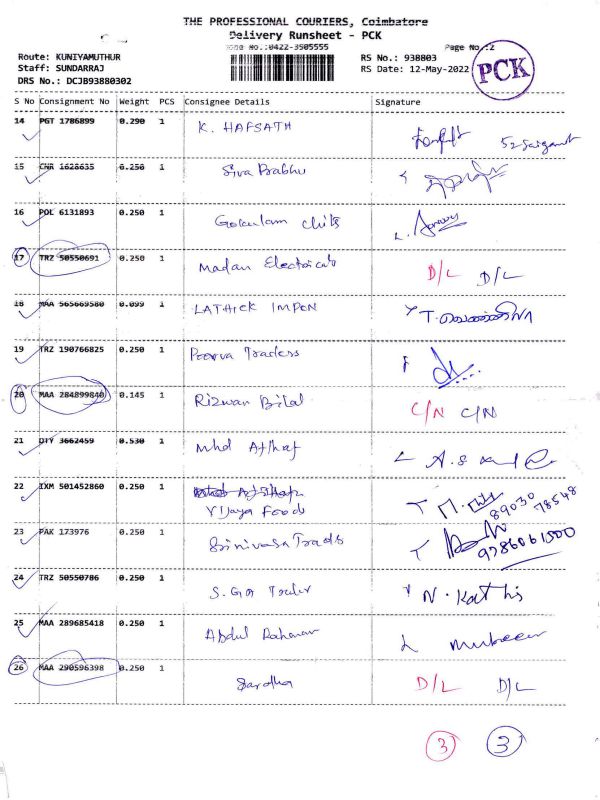 THE PROFESSIONAL COURIERS, Coimbatore
Delivery Runsheet - PCK
Page No :2
Route: KUNIYAMUTHUR
RS No.: 938803
Staff: SUNDARRAJ
RS Date: 12-May-2022
PCK
DRS No.: DCJB93880302
S No Consignment No Weight PCS Consignee Details Signature
14 PGT 1786899 0.290 1 K. HAFSATH
15 CNR 1628635 0.250 1 Siva Prabhu
16 POL 6131893 0.250 1 Gokulam Chits
17 TRZ 50550691 0.250 1 Madan Electricals D/L D/L
18 MAA 565669580 0.099 1 LATHICK IMPEN
19 TRZ 190766825 0.250 1 Poorva Traders
20 MAA 284899840 0.145 1 Rizwan Bilal C/N C/N
21 DTY 3662459 0.530 1 Mhd
22 IXM 501452860 0.250 1 Vijaya Food 89030 78548
23 PAK 173976 0.250 1 Srinivasa Trads 9786061500
24 TRZ 50550786 0.250 1 N. Kathis
25 MAA 289685418 0.250 1 Abdul
26 MAA 290596398 0.250 1 Sardha D/L D/L
3 3